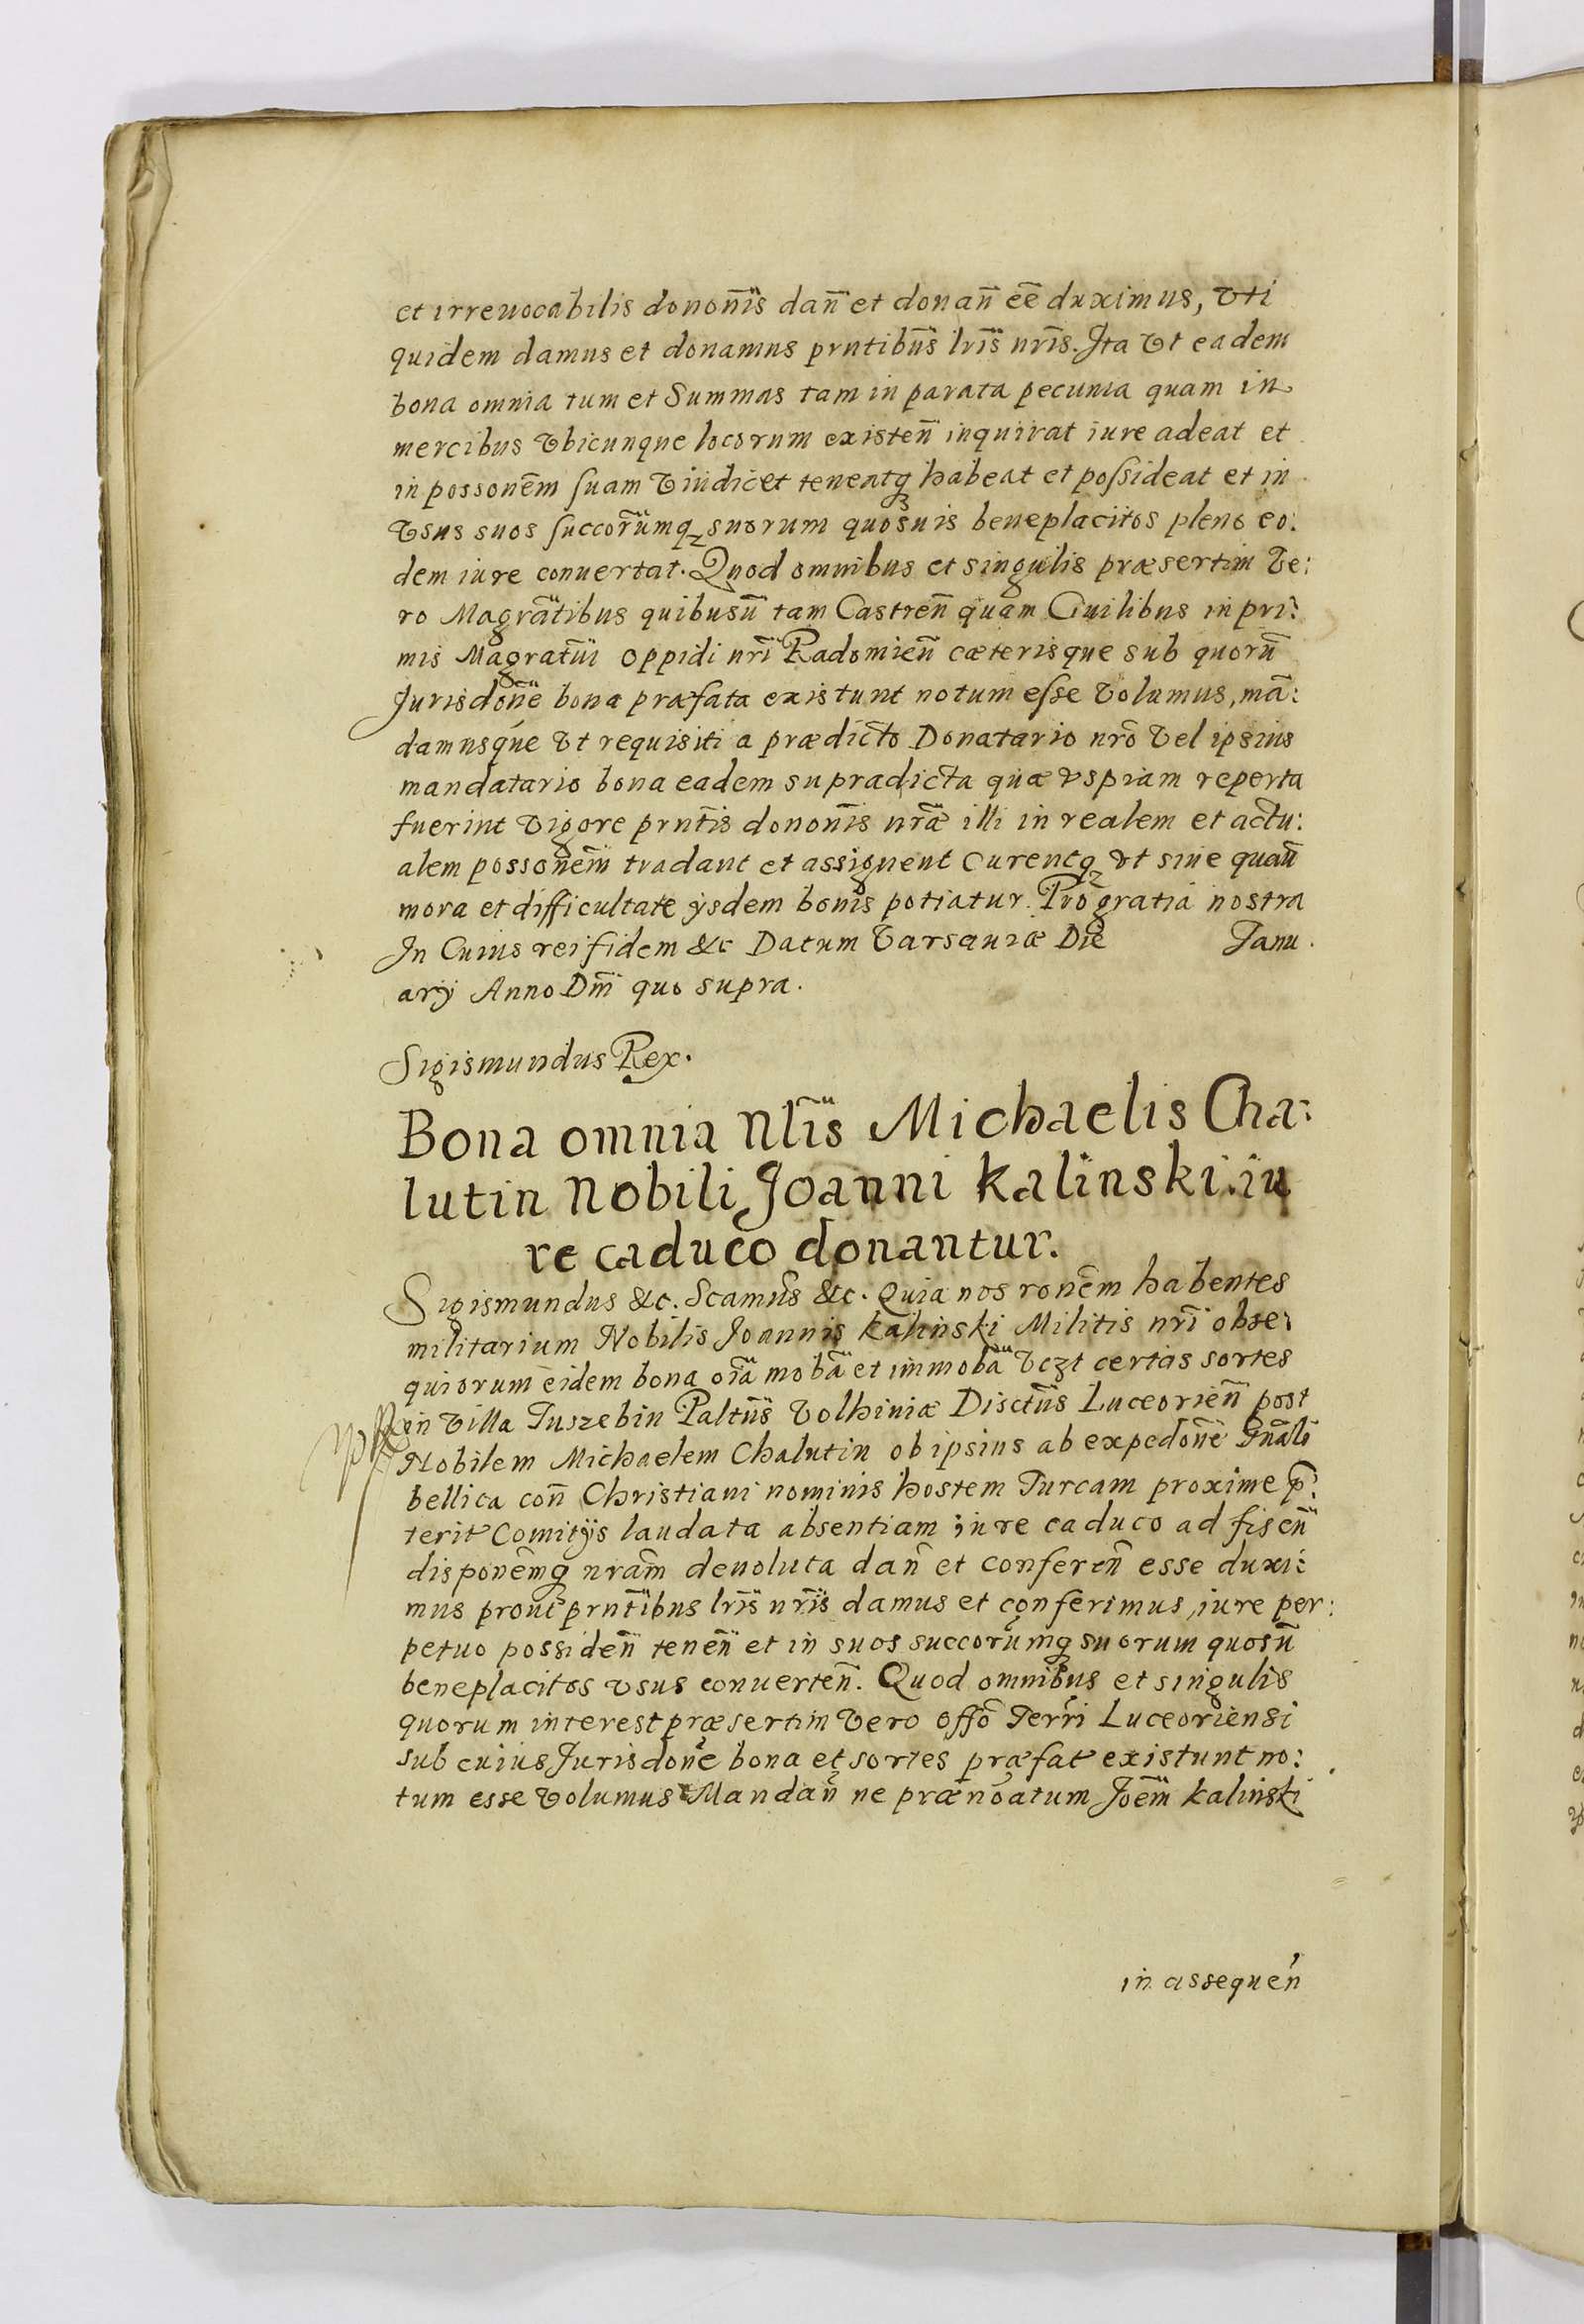 et irreuocabilis dononĩs dañ et donañ eẽ duximus, vti
quidem damus et donamus prntibũs lrĩs nrĩs. Ita vt eadem
bona omnia tum et Summas tam in parata pecunia quam in
mercibus vbicunque locorum existeñ inquirat iure adeat et
in possonẽm suam vindicet teneatq₃ habeat et possideat et in
vsus suos succorũmq₃ suorum quosuis beneplacitos pleno eo:
dem iure conuertat. Quod omnibus et singulis præsertim ve:
ro Magrãtibus quibusũ tam Castreñ quam Ciuilibus in pri:
mis Magratũi oppidi nrĩ Radomieñ cæterisque sub quorũ
Jurisdonẽ bona præfata existunt notum esse volumus, mã:
damusque vt requisiti a prædicto Donatario nrõ vel ipsius
mandatario bona eadem supradicta quæ vspiam reperta
fuerint vigore prntĩs dononĩs nræ̃ illi in realem et actu:
alem possonẽm tradant et assignent Curentq₃ vt sine quañ
mora et difficultate ysdem bonis potiatur. Pro gratia nostra
In Cuius rei fidem &c Datum Varsauiæ Die Janu.
arÿ Anno Dm̃i quo supra.
Sigismundus Rex.
Bona omnia Nlĩs Michaelis Cha:
lutin Nobili Joanni Kalinski iu
re caduco donantur.
Sigismundus &c. Scamũs &c. Quia nos ronẽm habentes
militarium Nobilis Joannis Kalinski Militis nrĩ obse:
quiorum eidem bona oĩa mobã et immobã vczt certas sortes
in villa Tuszebin Paltũs Volhiniæ Disctũs Luceorieñ post
Nobilem Michaelem Chalutin ob ipsius ab expedonẽ Gnãli
bellica coñ Christiani nominis hostem Turcam proxime p̃:
terit Comitÿs laudata absentiam iure caduco ad fiscũ
disponẽmq₃ nrãm deuoluta dañ et confereñ esse duxi:
mus prout prntĩbus lrĩs nrĩs damus et conferimus, iure per:
petuo possideñ teneñ et in suos succorũmq₃ suorum quosũ
beneplacitos vsus conuerteñ. Quod omnibus et singulis
quorum interest præsertim vero offõ Terrĩ Luceoriensi
sub cuius Jurisdonẽ bona et sortes præfat existunt no:
tum esse volumus Mandañ ne prænoãtum Joẽm Kalinski
in assequeñ